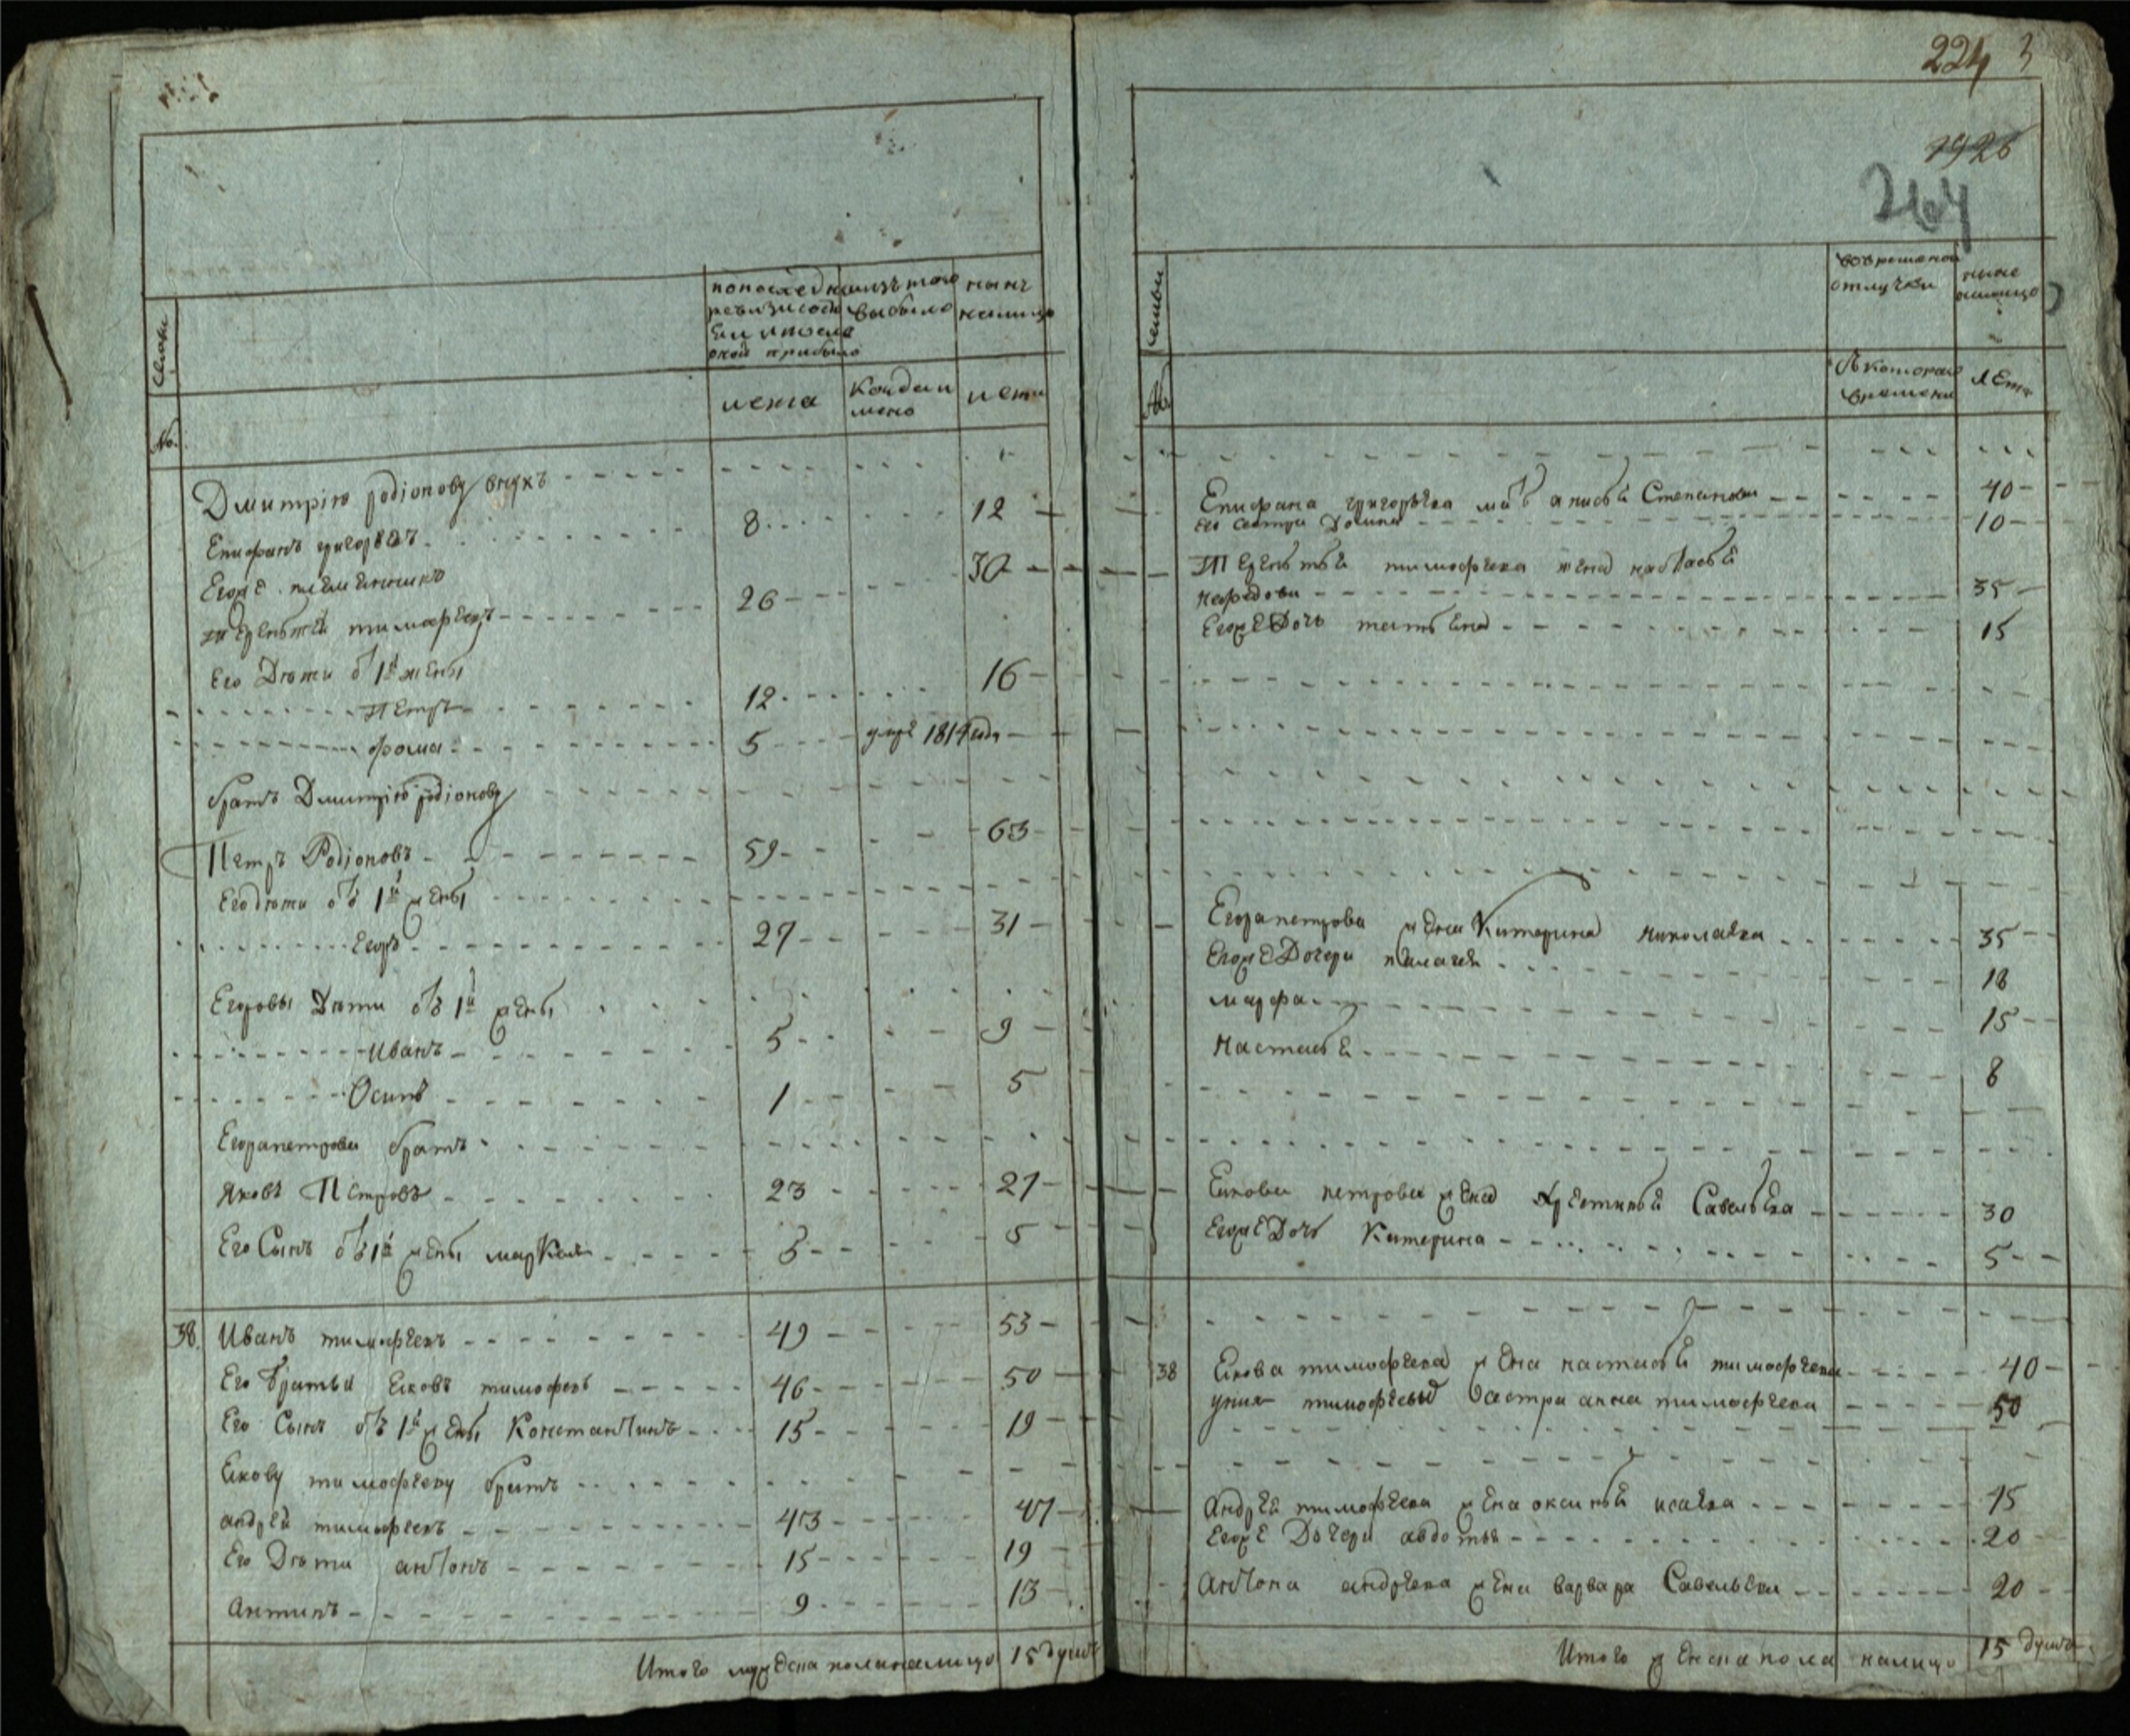 семьи
по последней ревизии состояло и после оной прибыло
изъ того выбыло
нынѣ налицо
№.
лета
когда именно
лета
Дмитрию родiонову внукъ
Епифанъ григорьевъ 8 12
Егоже племянникъ
терентей тимофеевъ 26 30
Его Дѣти от 1й жены
Петръ 12 16
фома 5 умре 1814 года
братъ Дмитрiю родiонову
Петръ Родiоновъ 59 63
Его дѣти отъ 1й жены
Егоръ 27 31
Егоровы Дѣти отъ 1й жены
Иванъ 5 9
Осипъ 1 5
Егора петрова братъ
яковъ Петровъ 23 27
Его Сынъ отъ 1й жены 5
38. Иванъ тимофеевъ 49 53
Его братья Ековъ тимофевъ 46 50
Его Сынъ отъ 1й жены Константинъ 15 19
Екову тимофееву братъ
андрей тимофеевъ 43 47
Его Дѣти антонъ 15 19
Антипъ 9 13
Итого мужеска пола налицо 15 душъ
224 3
1926
264
семьи
во временной отлучки
ныне налицо
№
Съ котораго времени
лета
Епифана григорьева мать аписья Степанова 40
его сестра Домна 10
Терентья тимофеева жена настасья
нефедова 35
Егоже Дочь татьяна 15
Егора петрова жена Катерина николаева 35
Егоже Дочери пелагея 18
марфа 15
Настасья 8
Екова петрова жена хрестинья Савельева 30
Егоже Дочь Катерина 5
38 Екова тимофеева жена настасья тимофеева 40
уних тимофеевых Сестра анна тимофеева 50
Андрея тимофеева жена оксинья исаева 45
Егоже Дочери авдотья 20
Антона андреева жена варвара Савельева 20
Итого женска пола налицо 15 душъ